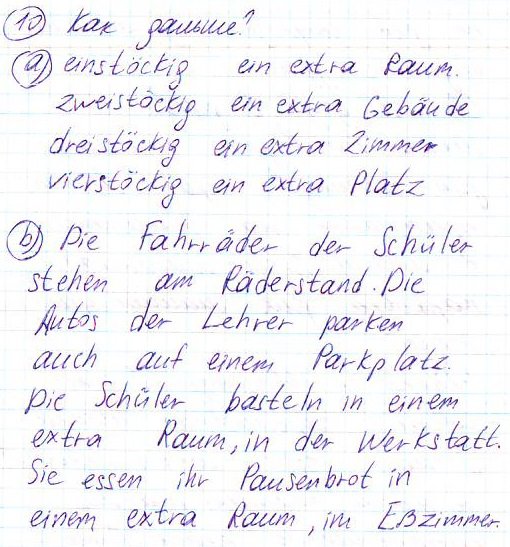 10 Как дальше?
a) einstöckig ein extra Raum.
zweistöckig ein extra Gebäude
dreistöckig ein extra Zimmer
vierstöckig ein extra Platz
b) Die Fahrräder der Schüler
stehen am Räderstand. Die
Autos der Lehrer parken
auch auf einem Parkplatz.
Die Schüler basteln in einem
extra Raum, in der Werkstatt.
Sie essen ihr Pausenbrot in
einem extra Raum, im Eßzimmer.